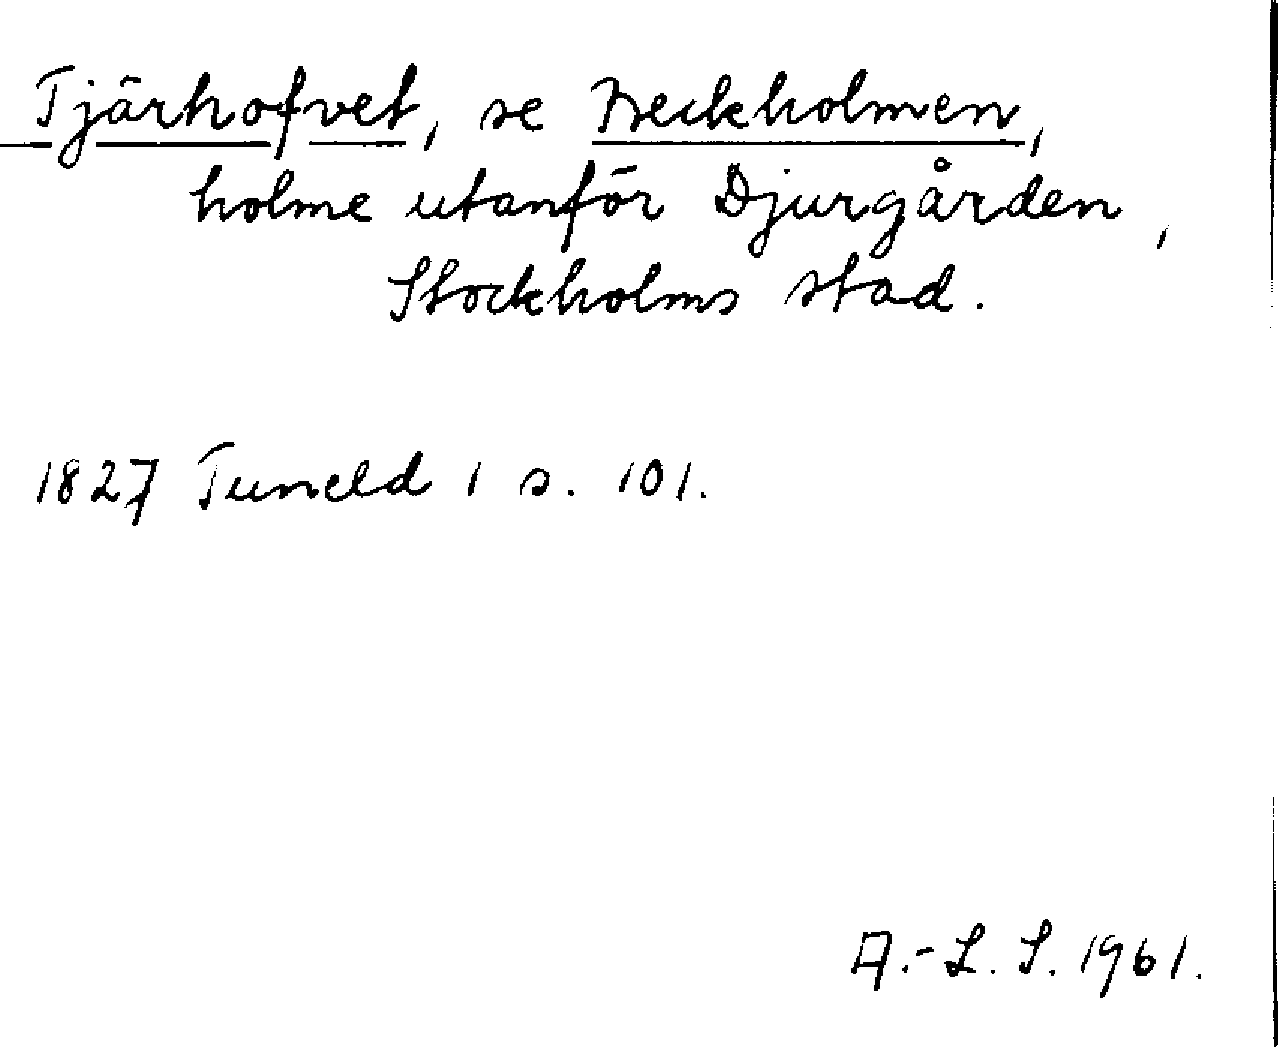 Tjärhofvet, se Beckholmen,
holme utanför Djurgården,
Stockholms stad.
1827 Tuneld 1 s. 101.
A.-L. S. 1961.